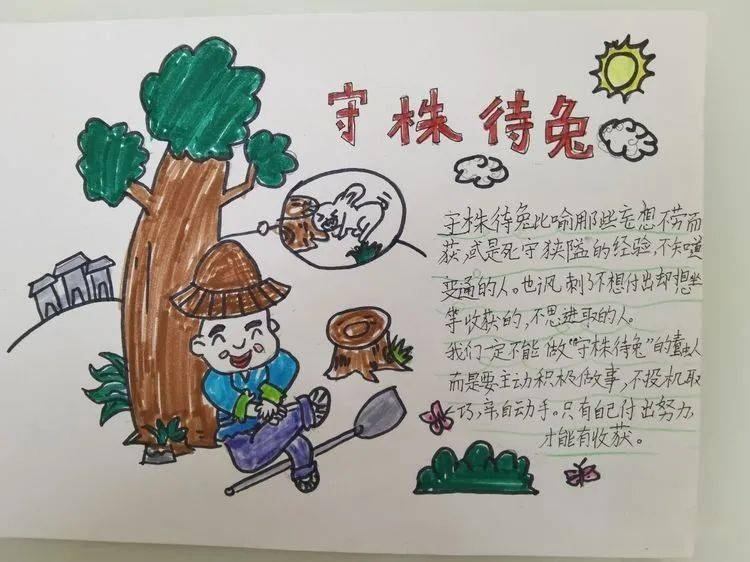 守株待兔
守株待兔比喻那些妄想不劳而
获,或是死守狭隘的经验,不知道
变通的人。也讽刺了不想付出却想坐
等收获的,不思进取的人。
我们一定不能做“守株待兔”的蠢人
而是要主动积极做事,不投机取
巧,亲自动手。只有自己付出努力
才能有收获。